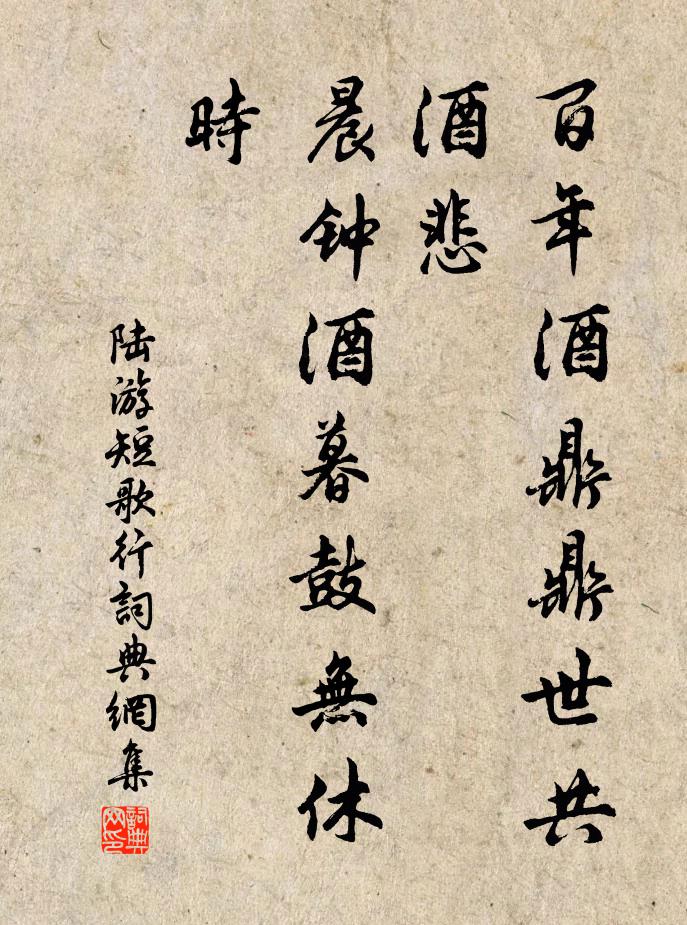 百年酒鼎鼎世共
酒悲
晨钟酒暮鼓無休
時
陆游短歌行詞典網集
詞典网印